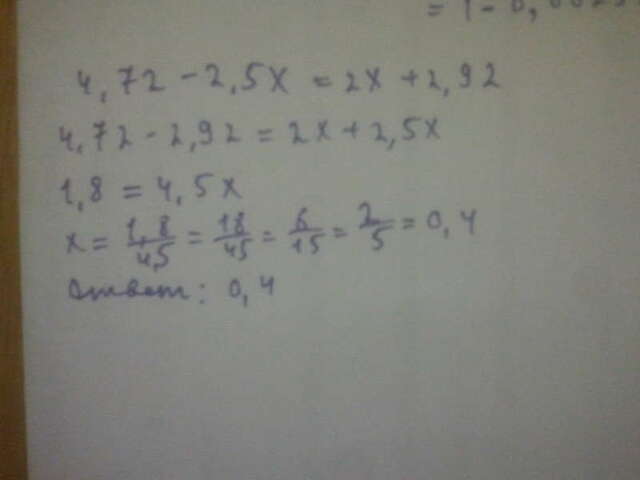 = 1 - 0,0025
4,72 - 2,5x = 2x + 2,92
4,72 - 2,92 = 2x + 2,5x
1,8 = 4,5x
x = 1,8/4,5 = 18/45 = 6/15 = 2/5 = 0,4
Ответ: 0,4